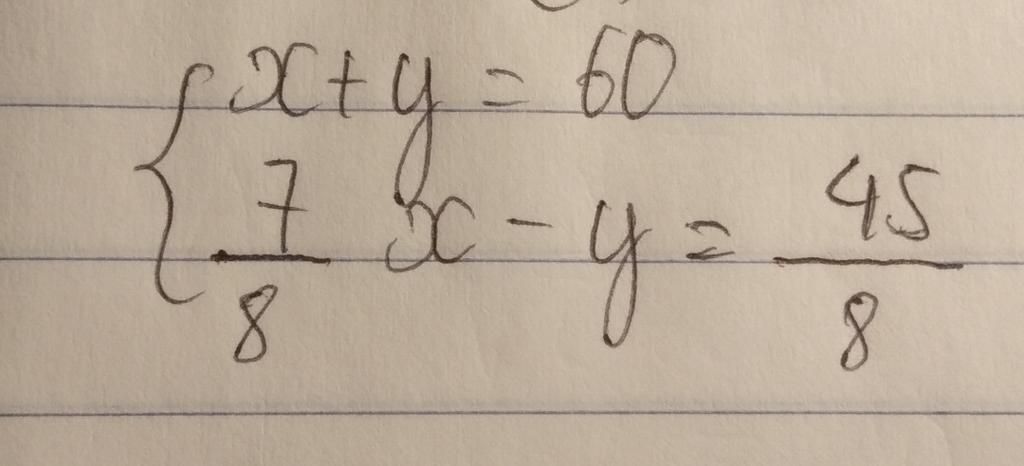 x + y = 60
7/8 x - y = 45/8